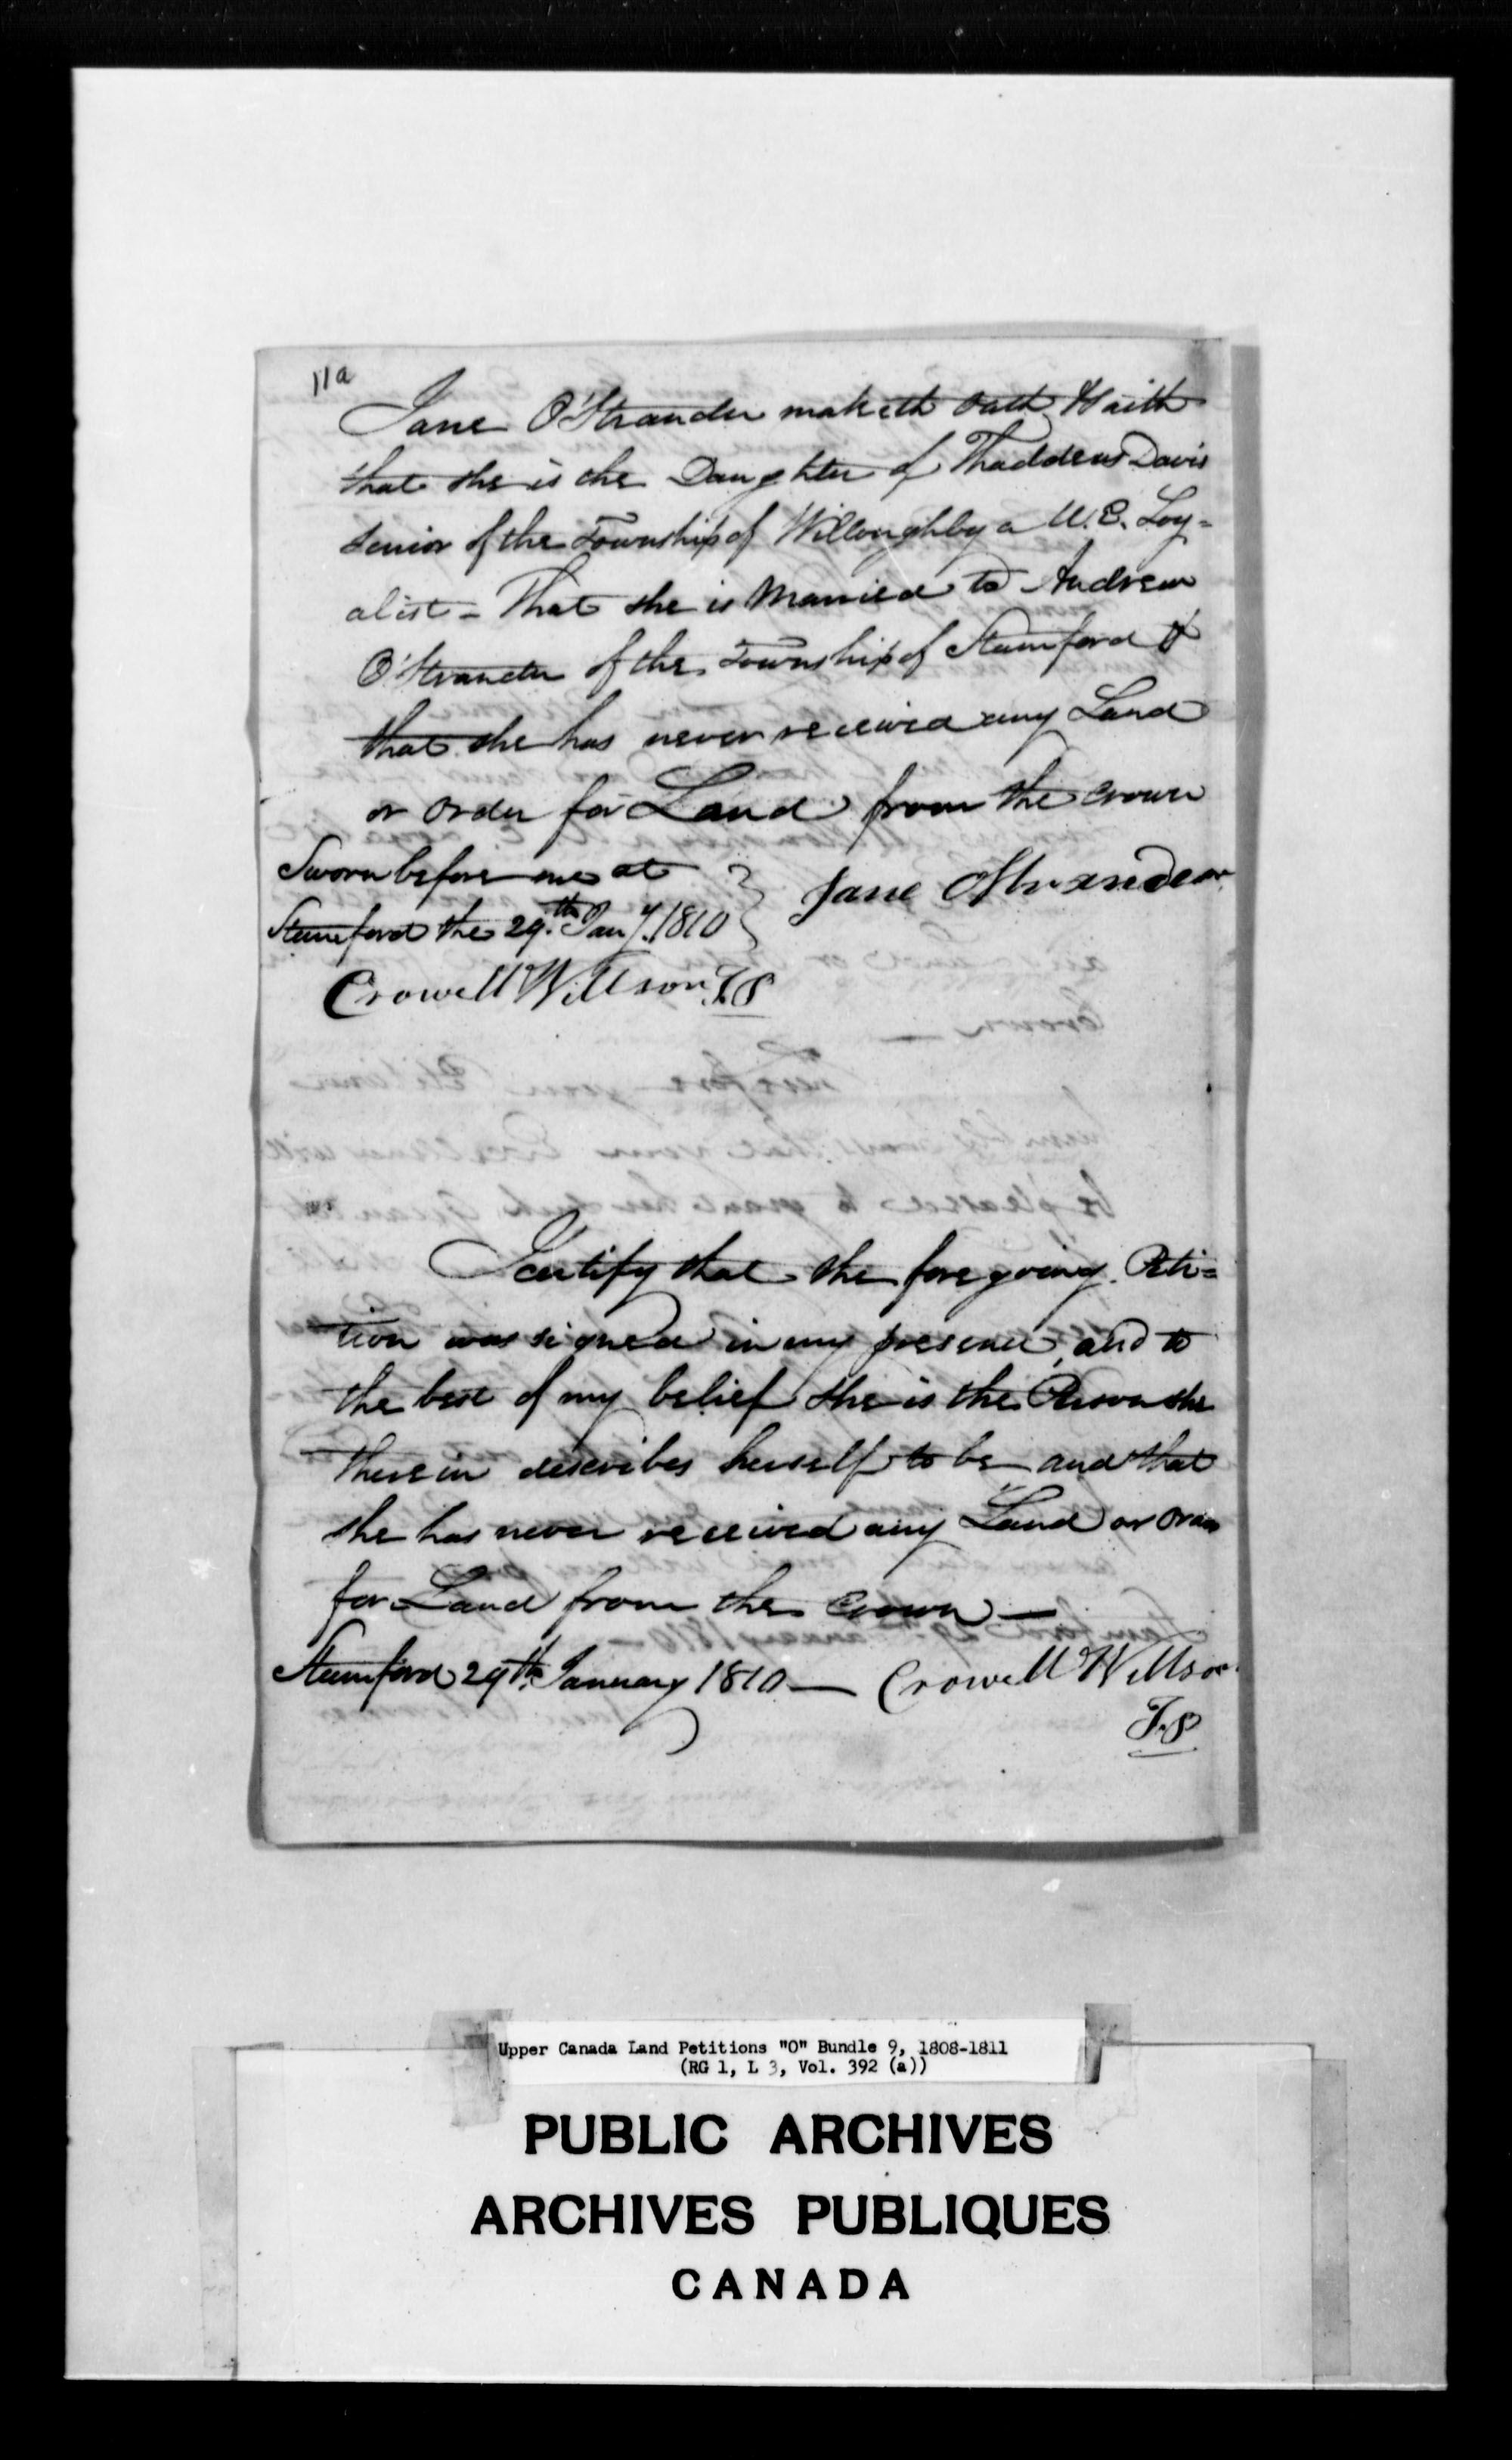 11a
Jane O'Strander maketh Oath & saith
that she is the Daughter of Thaddeus Davis
Senior of the Township of Willoughby a U.E. Loy=
alist - That she is Married to Andrew
O'Strander of the Township of Stamford &
that she has never received any Land
or Order for Land from the Crown
Sworn before me at
Stamford the 29.th Jany. 1810
Jane Ostrander
Crowell Willson J.P
I certify that the foregoing Peti=
tion was signed in my presence, and to
the best of my belief she is the Person she
therein describes herself to be and that
she has never received any Land or Order
for Land from the Crown —
Stamford 29th. January 1810 — Crowell Willson
J.P
Upper Canada Land Petitions "O" Bundle 9, 1808-1811
(RG 1, L 3, Vol. 392 (a))
PUBLIC ARCHIVES
ARCHIVES PUBLIQUES
CANADA